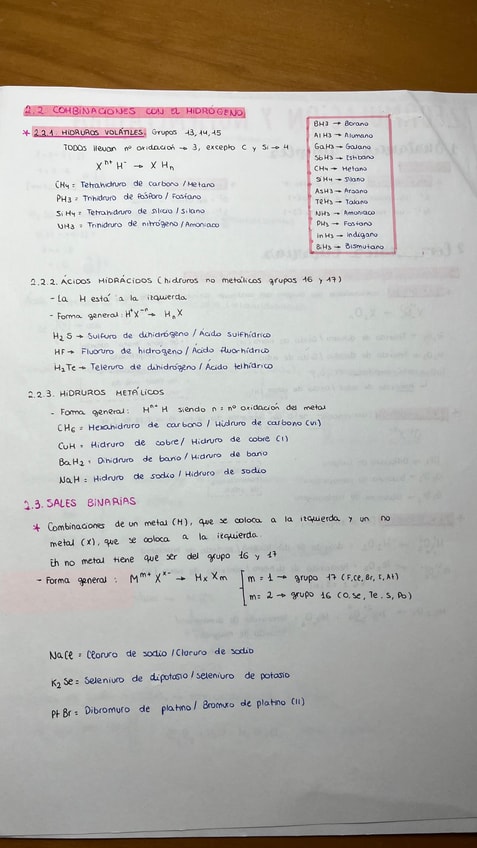 2.2 COMBINACIONES CON EL HIDRÓGENO
* 2.2.1. HIDRUROS VOLÁTILES. Grupos 13,14,15
TODOS llevan nº oxidación → 3, excepto C y Si → 4
Xⁿ⁺ H⁻ → X Hn
CH4 = Tetrahidruro de carbono / Metano
PH3 = Trihidruro de fósforo / Fosfano
SiH4 = Tetrahidruro de silicio / Silano
NH3 = Trihidruro de nitrógeno / Amoniaco
BH3 → Borano
AlH3 → Alumano
GaH3 → Galano
SbH3 → Estibano
CH4 → Metano
SiH4 → Silano
AsH3 → Arsano
TlH3 → Talano
NH3 → Amoniaco
PH3 → Fosfano
InH3 → Indigano
BiH3 → Bismutano
2.2.2. ÁCIDOS HIDRÁCIDOS (hidruros no metálicos grupos 16 y 17)
- La H está a la izquierda
- Forma general: H⁺X⁻ⁿ → HnX
H2S → Sulfuro de dihidrógeno / Ácido sulfhídrico
HF → Fluoruro de hidrógeno / Ácido fluorhídrico
H2Te → Teleruro de dihidrógeno / Ácido telhídrico
2.2.3. HIDRUROS METÁLICOS
- Forma general: Mⁿ⁺ H siendo n = nº oxidación del metal
CH6 = Hexahidruro de carbono / Hidruro de carbono (VI)
CuH = Hidruro de cobre / Hidruro de cobre (I)
BaH2 = Dihidruro de bario / Hidruro de bario
NaH = Hidruro de sodio / Hidruro de sodio
2.3. SALES BINARIAS
* Combinaciones de un metal (M), que se coloca a la izquierda y un no
metal (X), que se coloca a la izquierda.
Eh no metal tiene que ser del grupo 16 y 17
- Forma general: Mᵐ⁺ Xˣ⁻ → Mx Xm
m = 1 → grupo 17 (F, Cl, Br, I, At)
m = 2 → grupo 16 (O, Se, Te, S, Po)
NaCl = Cloruro de sodio / Cloruro de sodio
K2Se = Seleniuro de dipotasio / seleniuro de potasio
PtBr = Dibromuro de platino / Bromuro de platino (II)